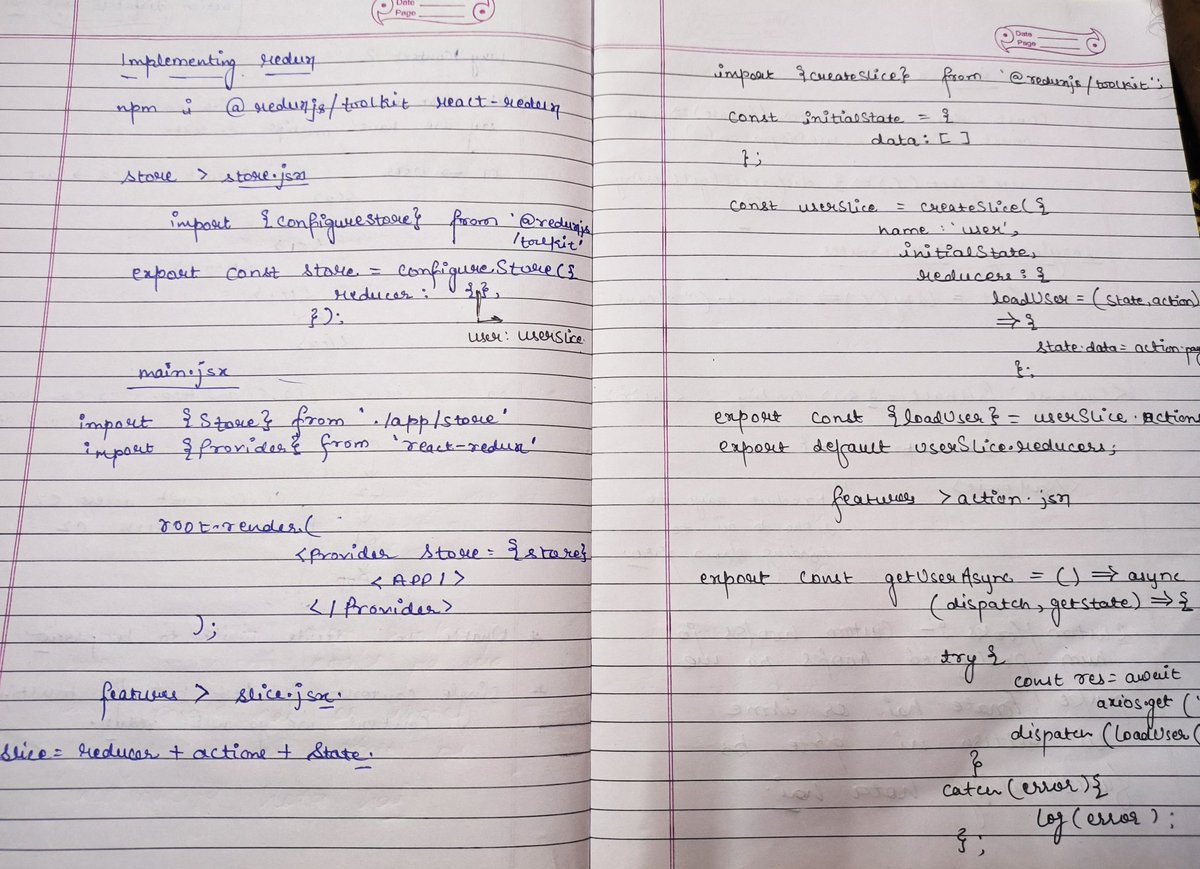 Date
Page
Implementing redux
npm i @reduxjs/toolkit react-redux
store > store.jsx
import {configurestore} from '@reduxjs
/toolkit'
export const store = configureStore({
reducer : {},
});
user: userSlice
main.jsx
import {Store} from './app/store'
import {Provider} from 'react-redux'
root.render(
<Provider store = {store}
<APP/>
</Provider>
);
features > slice.jsx.
slice = reducer + actions + State.
Date
Page
import {createSlice} from '@reduxjs/toolkit';
const initialState = {
data: []
};
const userSlice = createSlice({
name : 'user',
initialState,
reducers : {
loadUser = (state, action)
=> {
state.data = action.pay
};
export const {loadUser} = userSlice.actions
export default userSlice.reducers;
features > action.jsx
export const getUserAsync = () => async
(dispatch, getState) => {
try {
const res = await
axios.get ('
dispatch (loadUser(
}
catch (error) {
log (error);
};